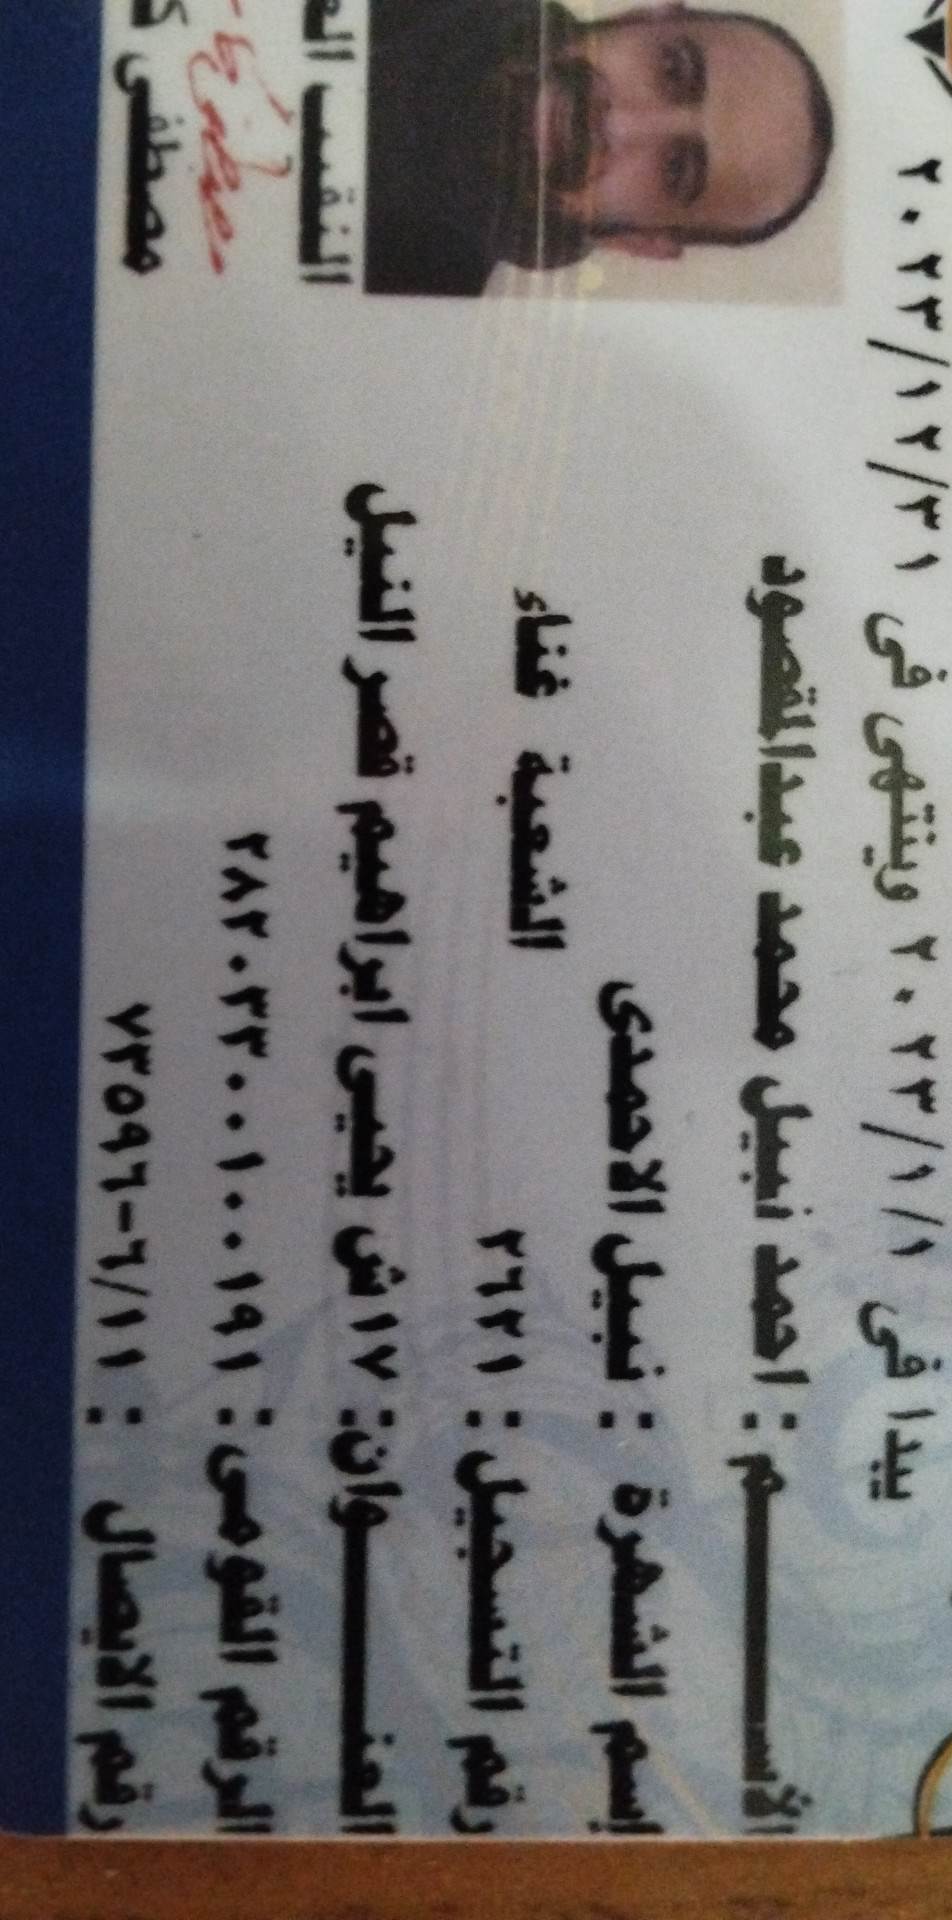 يبدا فى ٢٠٢٣/١/١ وينتهى فى ٢٠٢٣/١٢/٣١
الأســـــــــم : احمد نبيل محمد عبدالمقصود
إسم الشهرة : نبيل الاحمدى
رقم التسجيل : ٢٦٢١ الشعبة غناء
العنـــــــــوان: ١٧ش يحيى ابراهيم قصر النيل
الرقم القومى : ٢٨٢٠٣٣٠٠١٠٠١٩١
رقم الايصال : ٧٣٥٩٦-٦/١١
النقيب
مصطفى